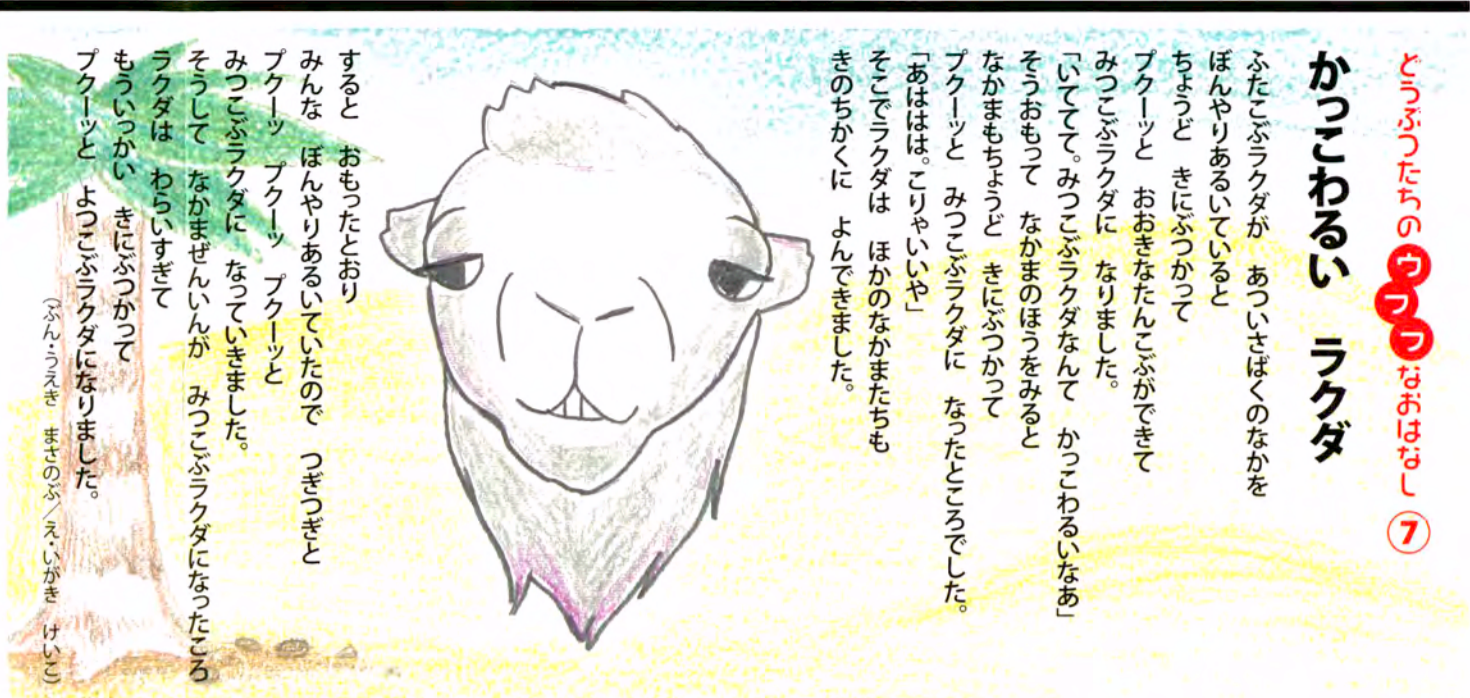 どうぶつたちのウフフなおはなし ⑦
かっこわるい　ラクダ
ふたこぶラクダが　あついさばくのなかを
ぼんやりあるいていると
ちょうど　きにぶつかって
プクーッと　おおきなたんこぶができて
みつこぶラクダに　なりました。
「いててて。みつこぶラクダなんて　かっこわるいなあ」
そうおもって　なかまのほうをみると
なかまもちょうど　きにぶつかって
プクーッと　みつこぶラクダに　なったところでした。
「あははは。こりゃいいや」
そこでラクダは　ほかのなかまたちも
きのちかくに　よんできました。
すると　おもったとおり
みんな　ぼんやりあるいていたので　つぎつぎと
プクーッ　プクーッ　プクーッと
みつこぶラクダに　なっていきました。
そうして　なかまぜんいんが　みつこぶラクダになったころ
ラクダは　わらいすぎて
もういっかい　きにぶつかって
プクーッと　よつこぶラクダになりました。
（ぶん・うえき　まさのぶ／え・いがき　けいこ）